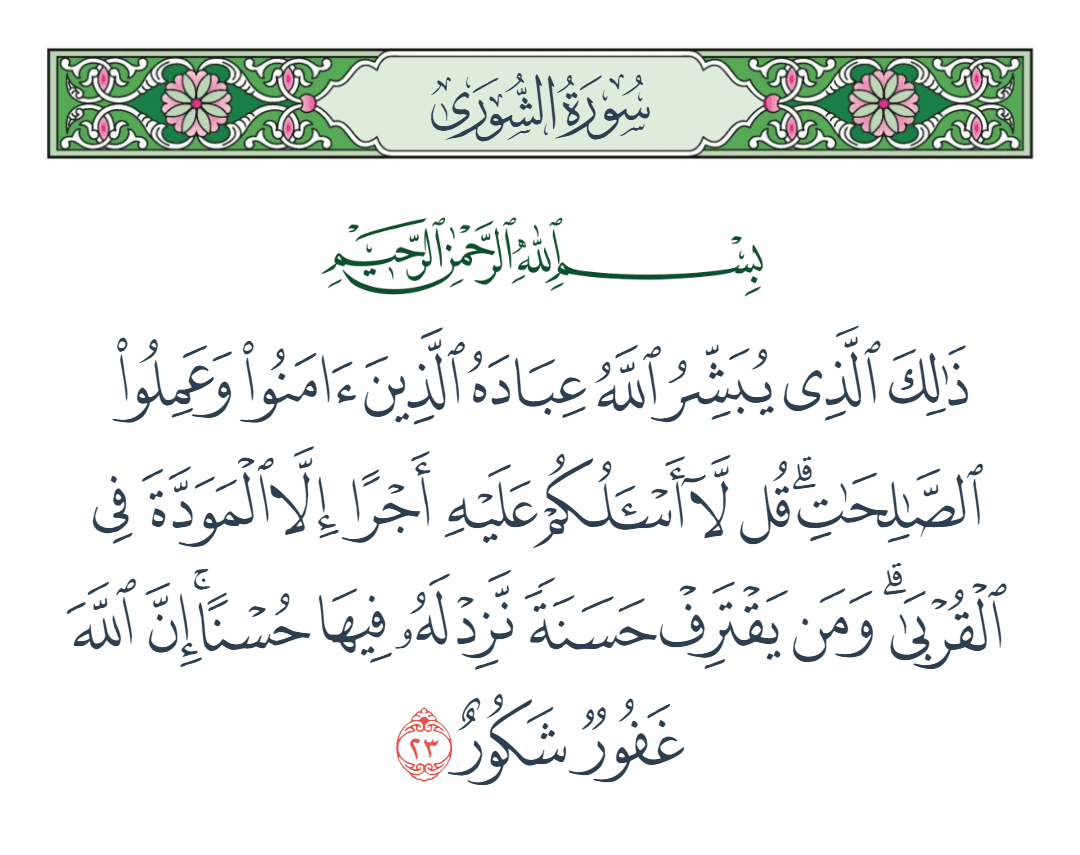 سُورَةُ الشُّورَىٰ
بِسْمِ ٱللَّهِ ٱلرَّحْمَٰنِ ٱلرَّحِيمِ
ذَٰلِكَ ٱلَّذِى يُبَشِّرُ ٱللَّهُ عِبَادَهُ ٱلَّذِينَ ءَامَنُوا۟ وَعَمِلُوا۟
ٱلصَّـٰلِحَـٰتِ ۗ قُل لَّآ أَسْـَٔلُكُمْ عَلَيْهِ أَجْرًا إِلَّا ٱلْمَوَدَّةَ فِى
ٱلْقُرْبَىٰ ۗ وَمَن يَقْتَرِفْ حَسَنَةً نَّزِدْ لَهُۥ فِيهَا حُسْنًا ۚ إِنَّ ٱللَّهَ
غَفُورٌ شَكُورٌ ٢٣